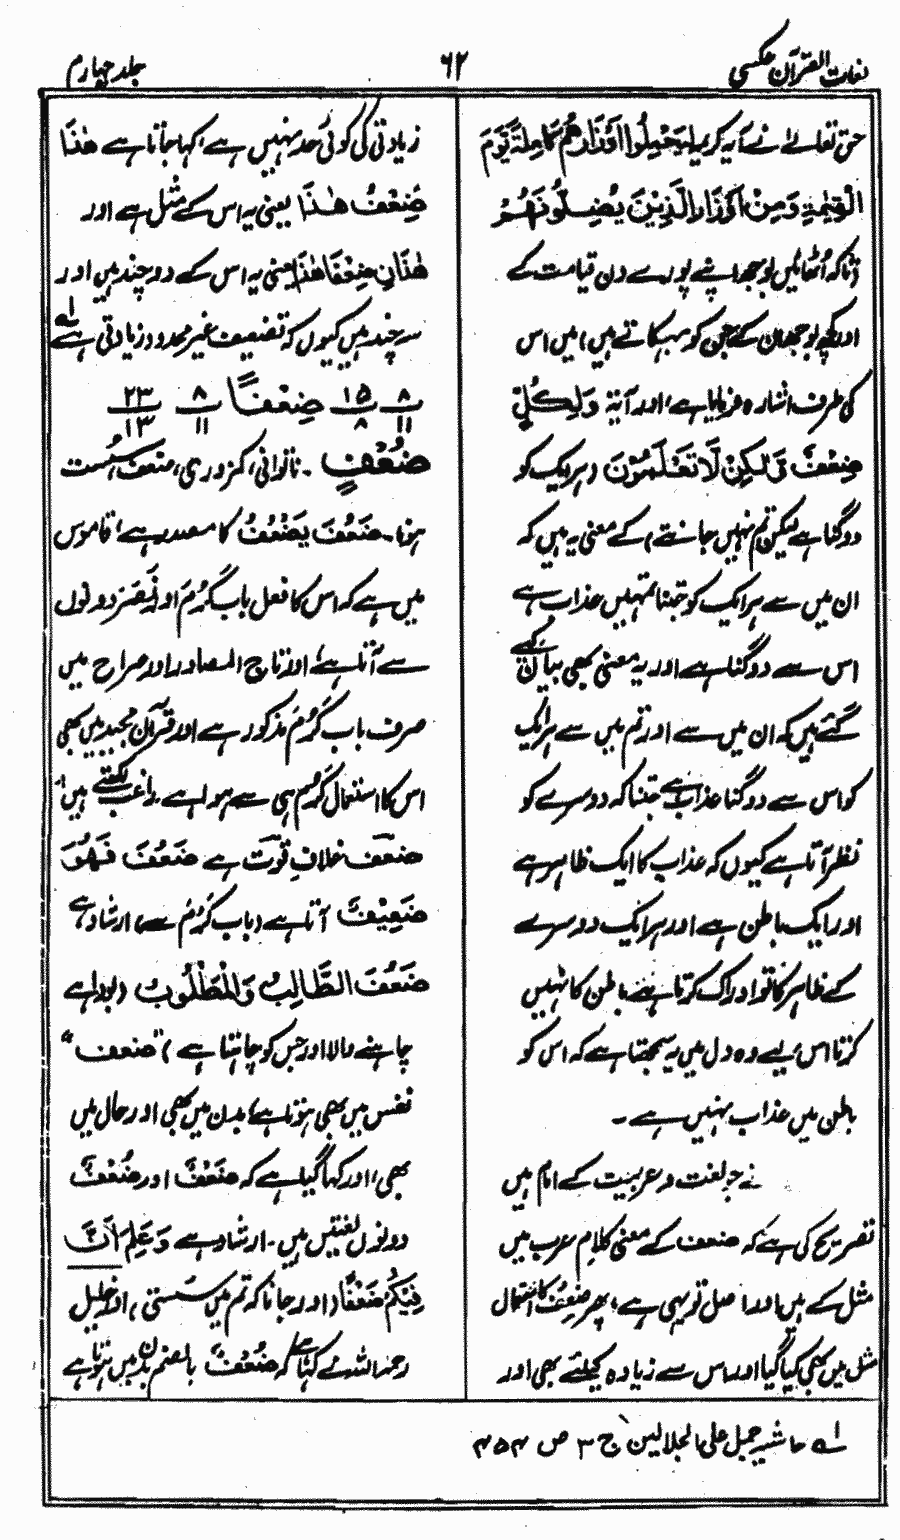 لغات القرآن عکسی
۶۲
جلد چہارم
حق تعالےٰ نے آیہ کریمہ لِیَحْمِلُوْا اَوْزَارَهُمْ کَامِلَةً یَّوْمَ
الْقِیٰمَةِ وَمِنْ اَوْزَارِ الَّذِیْنَ یُضِلُّوْنَهُمْ
(تاکہ اُٹھائیں بوجھ اپنے پورے دن قیامت کے
اور کچھ بوجھ ان کے جن کو بہکاتے ہیں) میں اس
کی طرف اشارہ فرمایا ہے، اور آیۃ وَلِکُلٍّ
ضِعْفٌ وَّلٰکِنْ لَّا تَعْلَمُوْنَ (ہر ایک کو
دوگنا ہے لیکن تم نہیں جانتے) کے معنی یہ ہیں کہ
ان میں سے ہر ایک کو جتنا تمہیں عذاب ہے
اس سے دوگنا ہے اور یہ معنی بھی بیان کئے
گئے ہیں کہ ان میں سے اور تم میں سے ہر ایک
کو اس سے دوگنا عذاب ہے جتنا کہ دوسرے کو
نظر آتا ہے کیوں کہ عذاب کا ایک ظاہر ہے
اور ایک باطن ہے اور ہر ایک دوسرے
کے ظاہر کا تو ادراک کرتا ہے باطن کا نہیں
کرتا اس لیے وہ دل میں یہ سمجھتا ہے کہ اس کو
باطن میں عذاب نہیں ہے ۔
نے جو لغت و عربیت کے امام ہیں
تصریح کی ہے کہ ضعف کے معنی کلامِ عرب میں
مثل کے ہیں اور اصل تو یہی ہے، پھر ضِعْفٌ کا استعمال
مثل میں بھی کیا گیا اور اس سے زیادہ کیلئے بھی اور
زیادتی کی کوئی حد نہیں ہے، کہا جاتا ہے هٰذَا
ضِعْفُ هٰذَا یعنی یہ اس کے مثل ہے اور
هٰذَانِ ضِعْفَا هٰذَا یعنی یہ اس کے دو چند ہیں اور
سہ چند ہیں کیوں کہ تضعیف غیر محدود زیادتی ہے لہ
۸/۱۱ ۱۵/۸ ضِعْفًا ۸/۱۱ ۲۳/۱۳
ضُعْفٍ ۔ ناتوانی، کمزوری، ضعف، سُست
ہونا ۔ ضَعُفَ یَضْعُفُ کا مصدر ہے، قاموس
میں ہے کہ اس کا فعل باب کَرُمَ اور نَصَرَ دونوں
سے آتا ہے، اور تاج المصادر اور صراح میں
صرف باب کَرُمَ مذکور ہے اور قرآن مجید میں بھی
اس کا استعمال کَرُمَ ہی سے ہوا ہے راغب لکھتے ہیں
ضعف خلافِ قوّت ہے ضَعُفَ فَهُوَ
ضَعِیْفٌ آتا ہے (باب کَرُمَ سے) ارشاد ہے
ضَعُفَ الطَّالِبُ وَالْمَطْلُوْبُ (بودا ہے
چاہنے والا اور جس کو چاہتا ہے) "ضعف"
نفس میں بھی ہوتا ہے، بدن میں بھی اور حال میں
بھی، اور کہا گیا ہے کہ ضَعْفٌ اور ضُعْفٌ
دونوں لغتیں ہیں ۔ ارشاد ہے وَعَلِمَ اَنَّ
فِیْکُمْ ضَعْفًا (اور جانا کہ تم میں سستی)، اور خلیل
رحمہ اللہ نے کہا ہے کہ ضُعْفٌ بالضم بدن میں ہوتا ہے
لہ حاشیہ جمل علی الجلالین ج ۳ ص ۴۵۴